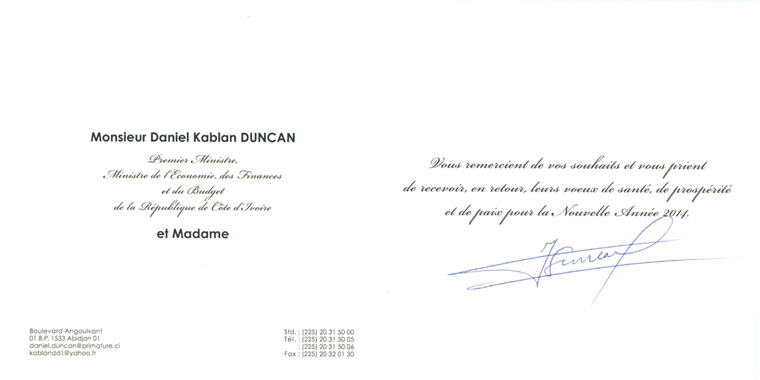 Monsieur Daniel Kablan DUNCAN
Premier Ministre,
Ministre de l'Economie, des Finances
et du Budget
de la République de Côte d'Ivoire
et Madame
Boulevard Angoulvant
01 B.P. 1533 Abidjan 01
daniel.duncan@primature.ci
kablandd1@yahoo.fr
Std. : (225) 20 31 50 00
Tél. : (225) 20 31 50 05
: (225) 20 31 50 06
Fax : (225) 20 32 01 30
Vous remercient de vos souhaits et vous prient
de recevoir, en retour, leurs voeux de santé, de prospérité
et de paix pour la Nouvelle Année 2014.
Duncan